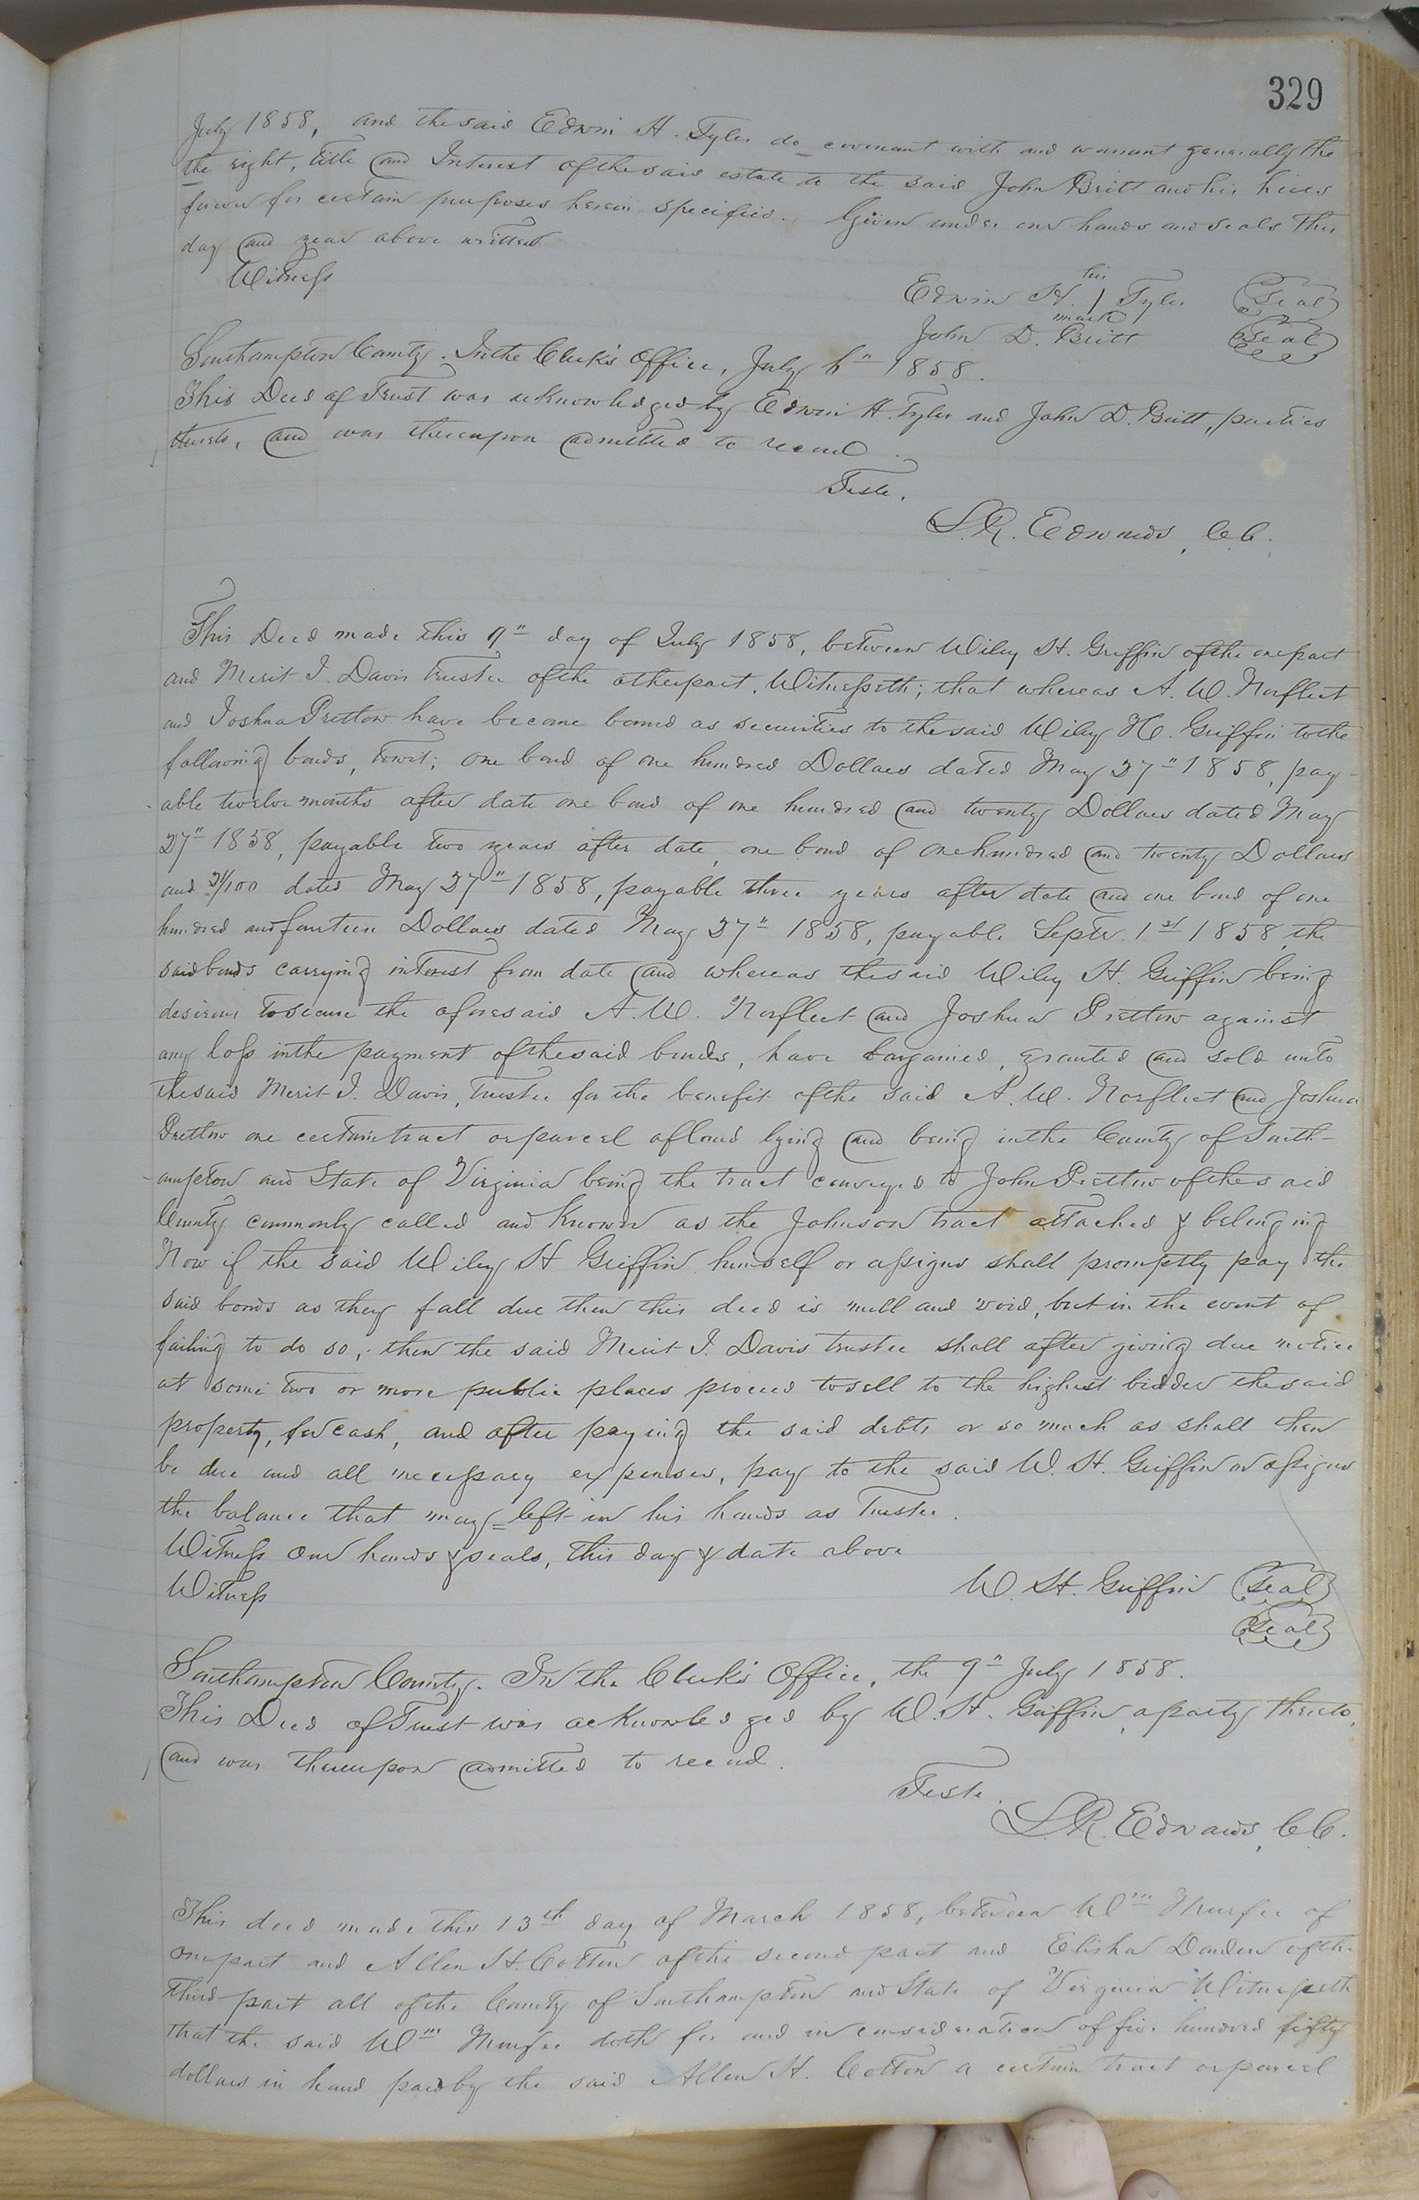 329
July 1858, and the said Edwin H. Tyler do covenant with and warrant generally the
the right, title and Interest of the said estate to the said John Britt and his heirs
forever for certain purposes herein specified. Given under our hands and seals this
day and year above written
Witness
his
Edwin H. / Tyler (Seal)
mark
John D. Britt (Seal)
Southampton County. In the Clerk's Office, July 1858.
This Deed of Trust was acknowledged by Edwin H. Tyler and John D. Britt, parties
thereto, and was thereupon admitted to record.
Teste.
L. R. Edwards, C C.
This Deed made this 9" day of July 1858, between Wiley H. Griffin of the one part
and Merit I. Davis trustee of the other part, Witnesseth; that whereas A. W. Norfleet
and Joshua Pretlow have become bound as securities to the said Wiley H. Griffin to the
following bonds, towit; one bond of one hundred Dollars dated May 27" 1858, pay-
able twelve months after date one bond of one hundred and twenty Dollars dated May
27" 1858, payable two years after date, one bond of one hundred and twenty Dollars
and /100 dated May 27" 1858, payable three years after date and one bond of one
hundred and fourteen Dollars dated May 27" 1858, payable Septr. 1st 1858, the
said bonds carrying interest from date and whereas the said Wiley H. Griffin being
desirous to secure the aforesaid A. W. Norfleet and Joshua Pretlow against
any loss in the payment of the said bonds, have bargained, granted and sold unto
the said Merit I. Davis, trustee for the benefit of the said A. W. Norfleet and Joshua
Pretlow one certain tract or parcel of land lying and being in the County of South-
ampton and State of Virginia being the tract conveyed to John Pretlow of the said
County commonly called and known as the Johnson tract attached & belonging
Now if the said Wiley H Griffin himself or assigns shall promptly pay the
said bonds as they fall due then this deed is null and void, but in the event of
failing to do so; then the said Merit I. Davis trustee shall after giving due notice
at some two or more public places proceed to sell to the highest bidder the said
property, for cash, and after paying the said debts or so much as shall then
be due and all necessary expenses, pay to the said W. H. Griffin or assigns
the balance that may left in his hands as Trustee.
Witness our hands & seals, this day & date above
Witness W. H. Griffin (Seal)
(Seal)
Southampton County. In the Clerk's Office, the 9" July 1858.
This Deed of Trust was acknowledged by W. H. Griffin, a party thereto,
and was thereupon admitted to record.
Teste.
L. R. Edwards, C C.
This deed made this 13th day of March 1858, between Wm Murfee of
one part and Allen H. Cotton of the second part and Elisha Darden of the
third part all of the County of Southampton and State of Virginia Witnesseth
that the said Wm Murfee doth for and in consideration of five hundred fifty
dollars in hand paid by the said Allen H. Cotton a certain tract or parcel